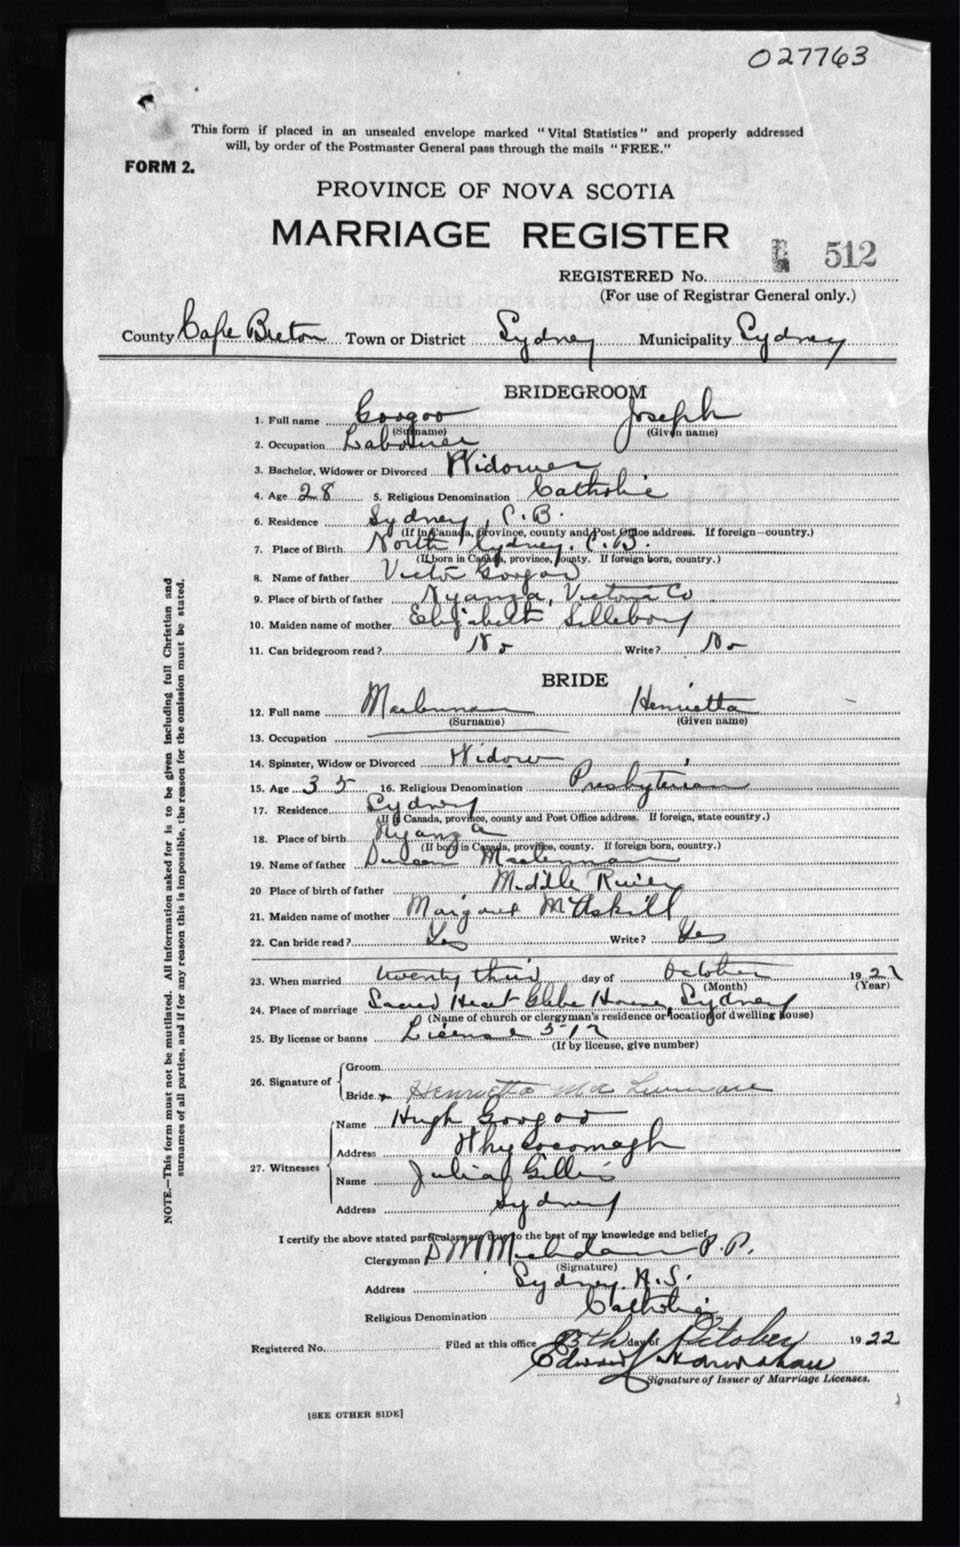 027763
This form if placed in an unsealed envelope marked "Vital Statistics" and properly addressed
will, by order of the Postmaster General pass through the mails "FREE."
FORM 2.
PROVINCE OF NOVA SCOTIA
MARRIAGE REGISTER
512
REGISTERED No.
(For use of Registrar General only.)
County Cape Breton Town or District Sydney Municipality Sydney
BRIDEGROOM
1. Full name Googoo Joseph
(Surname) (Given name)
2. Occupation Labourer
3. Bachelor, Widower or Divorced Widower
4. Age 28 5. Religious Denomination Catholic
6. Residence Sydney, C.B.
(If in Canada, province, county and Post Office address. If foreign—country.)
7. Place of Birth North Sydney, C.B.
(If born in Canada, province, county. If foreign born, country.)
8. Name of father Victor Googoo
9. Place of birth of father Nyanza, Victoria Co
10. Maiden name of mother Elizabeth
11. Can bridegroom read? No Write? No
BRIDE
12. Full name Maclennan Henrietta
(Surname) (Given name)
13. Occupation
14. Spinster, Widow or Divorced Widow
15. Age 35 16. Religious Denomination Presbyterian
17. Residence Sydney
(If in Canada, province, county and Post Office address. If foreign, state country.)
18. Place of birth Nyanza
(If born in Canada, province, county. If foreign born, country.)
19. Name of father Duncan Maclennan
20 Place of birth of father Middle River
21. Maiden name of mother Margaret McAskill
22. Can bride read? Yes Write? Yes
23. When married twenty third day of October 1922
(Month) (Year)
24. Place of marriage Sacred Heart Glebe House, Sydney
(Name of church or clergyman's residence or location of dwelling house)
25. By license or banns License 512
(If by license, give number)
26. Signature of
Groom
Bride Henrietta Mac Lennan
27. Witnesses
Name Hugh Googoo
Address Whycocomagh
Name Julia Gillis
Address Sydney
I certify the above stated particulars are true to the best of my knowledge and belief.
Clergyman P.P.
(Signature)
Address Sydney N.S.
Religious Denomination Catholic
Registered No. Filed at this office day of October 1922
Edward
Signature of Issuer of Marriage Licenses.
[SEE OTHER SIDE]
NOTE.—This form must not be mutilated. All information asked for is to be given including full Christian and
surnames of all parties, and if for any reason this is impossible, the reason for the omission must be stated.